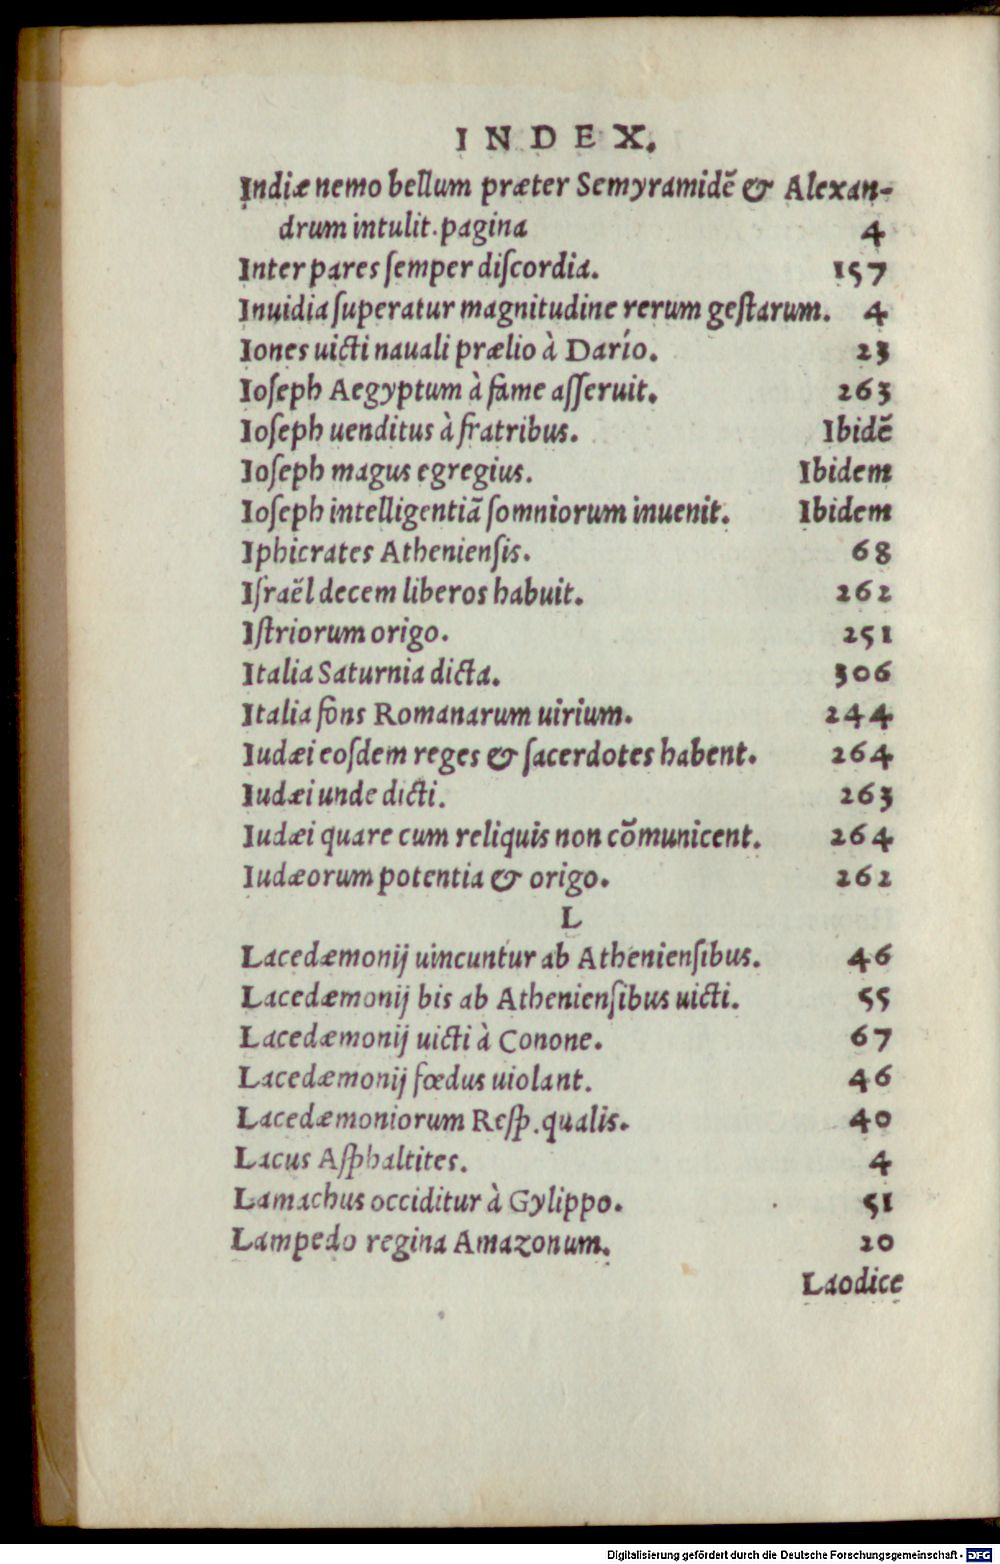 INDEX.
Indiæ nemo bellum præter Semyramidē & Alexan-
drum intulit. pagina 4
Inter pares ſemper diſcordia. 157
Inuidia ſuperatur magnitudine rerum geſtarum. 4
Iones uicti nauali prælio à Darío. 23
Ioſeph Aegyptum à fame aſſeruit. 263
Ioſeph uenditus à fratribus. Ibidē
Ioſeph magus egregius. Ibidem
Ioſeph intelligentiā ſomniorum inuenit. Ibidem
Iphicrates Athenienſis. 68
Iſraël decem liberos habuit. 262
Iſtriorum origo. 251
Italia Saturnia dicta. 306
Italia fons Romanarum uirium. 244
Iudæi eoſdem reges & ſacerdotes habent. 264
Iudæi unde dicti. 263
Iudæi quare cum reliquis non cōmunicent. 264
Iudæorum potentia & origo. 262
L
Lacedæmonij uincuntur ab Athenienſibus. 46
Lacedæmonij bis ab Athenienſibus uicti. 55
Lacedæmonij uicti à Conone. 67
Lacedæmonij fœdus uiolant. 46
Lacedæmoniorum Reſp. qualis. 40
Lacus Aſphaltites. 4
Lamachus occiditur à Gylippo. 51
Lampedo regina Amazonum. 20
Laodice
Digitalisierung gefördert durch die Deutsche Forschungsgemeinschaft - DFG